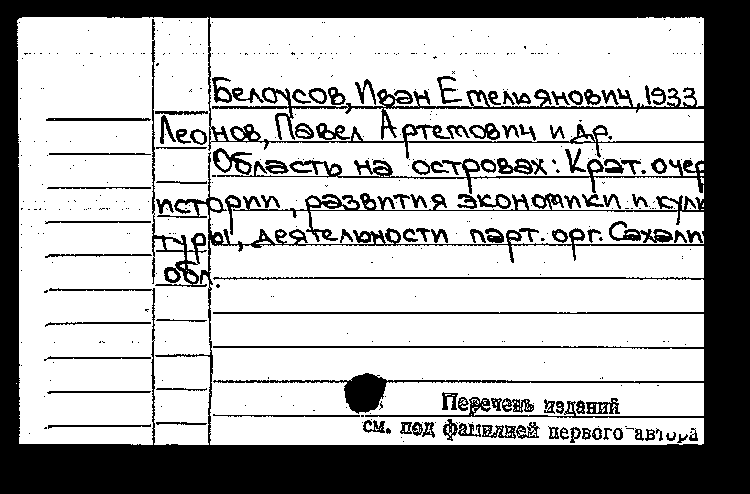 Белоусов, Иван Емельянович, 1933
Леонов, Павел Артемович и др.
Область на островах: Крат. очер
истории, развития экономики и куль
туры, деятельности парт. орг. Сахалин
обл.
Перечень изданий
см. под фамилией первого автора